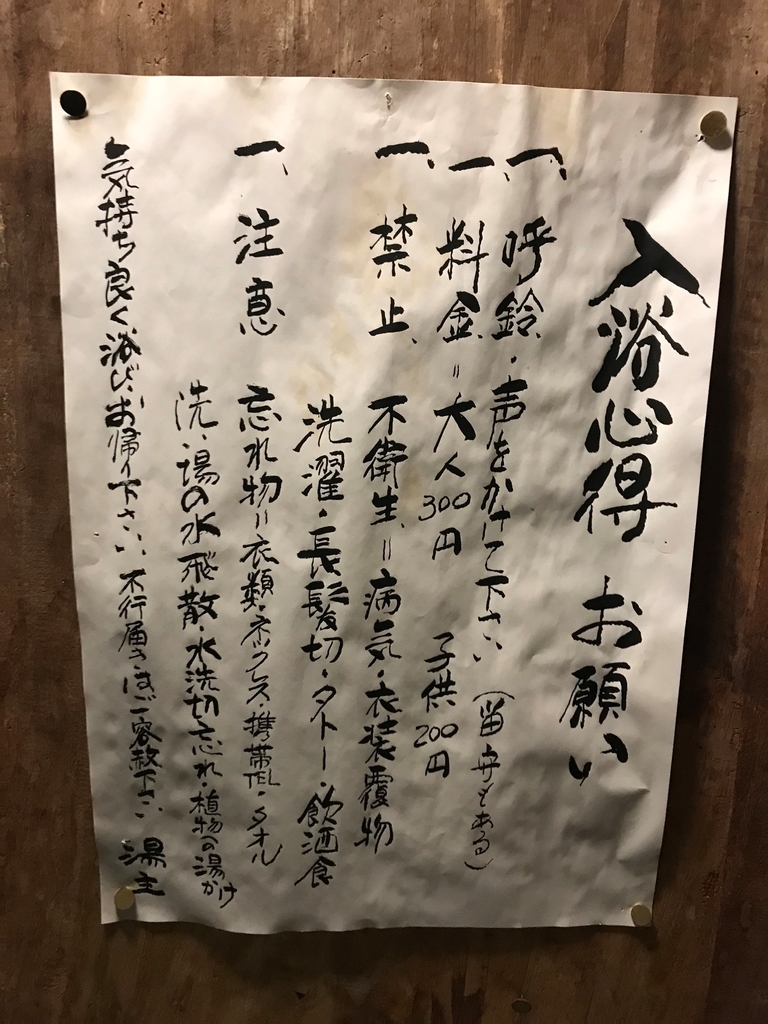 入浴心得 お願い
一、呼鈴・声をかけて下さい (留守もある)
一、料金=大人300円 子供200円
一、禁止、不衛生=病気・衣装覆物
洗濯・長髪切・タトー・飲酒食
一、注意 忘れ物=衣類・ネックレス・携帯TEL・タオル
洗い場の水飛散・水洗切忘れ・植物への湯かけ
気持ち良く浴び、お帰り下さい、不行届きはご容赦下さい 湯主